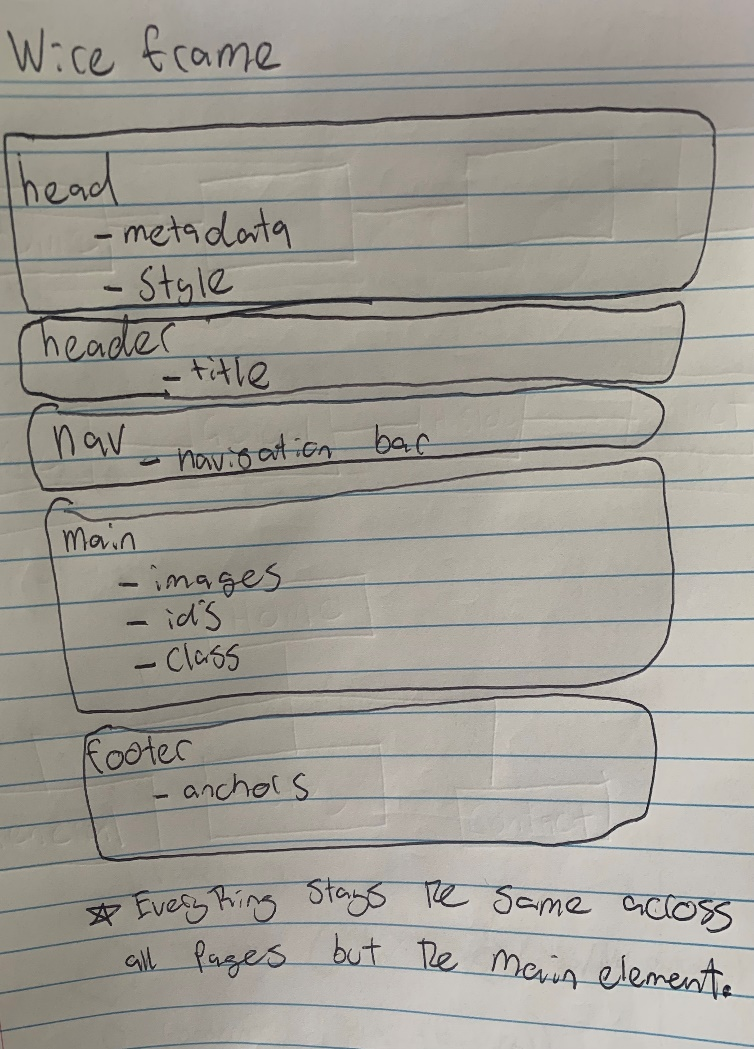 Wire frame
head
- metadata
- Style
header
- title
nav - navigation bar
main
- images
- id's
- Class
footer
- anchors
☆ Everything stays the same across
all Pages but the main element.